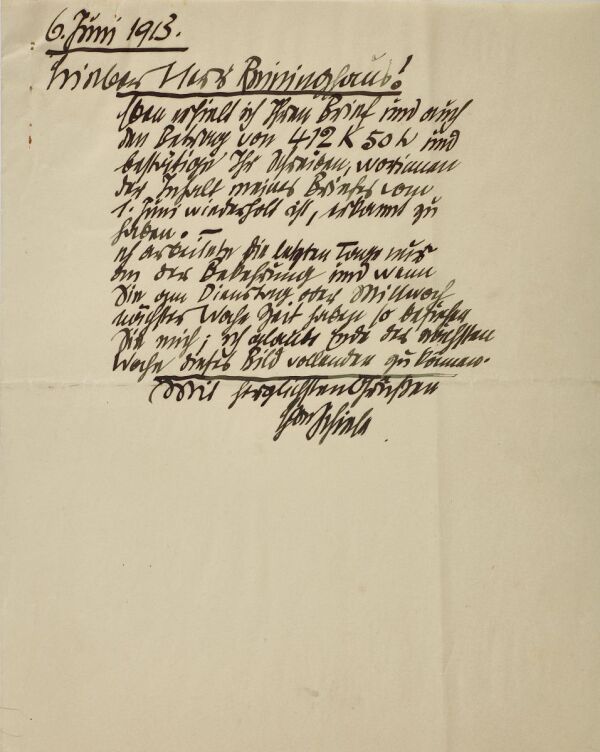 6. Juni 1913.
Lieber Herr Reininghaus!
Eben erhielt ich Ihren Brief und auch
den Betrag von 412 K 50 h und
bestätige Ihr Schreiben, worinnen
der Inhalt meines Briefes vom
1. Juni wiederholt ist, erkannt zu
haben. —
Ich arbeitete die letzten Tage nur
an der Bekehrung und wenn
Sie am Dienstag oder Mittwoch
nächster Woche Zeit haben so besuchen
Sie mich; ich glaube Ende der nächsten
Woche dieses Bild vollenden zu können.
Mit herzlichsten Grüßen
Egon Schiele.